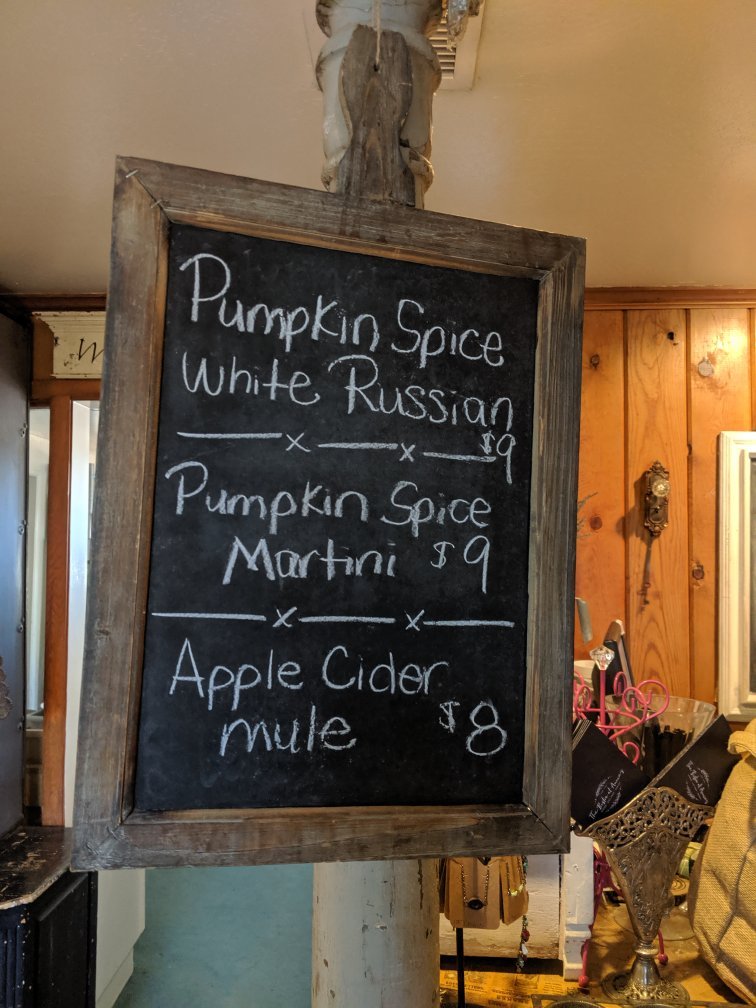 Pumpkin Spice
White Russian
$9
Pumpkin Spice
Martini $9
Apple Cider
mule $8